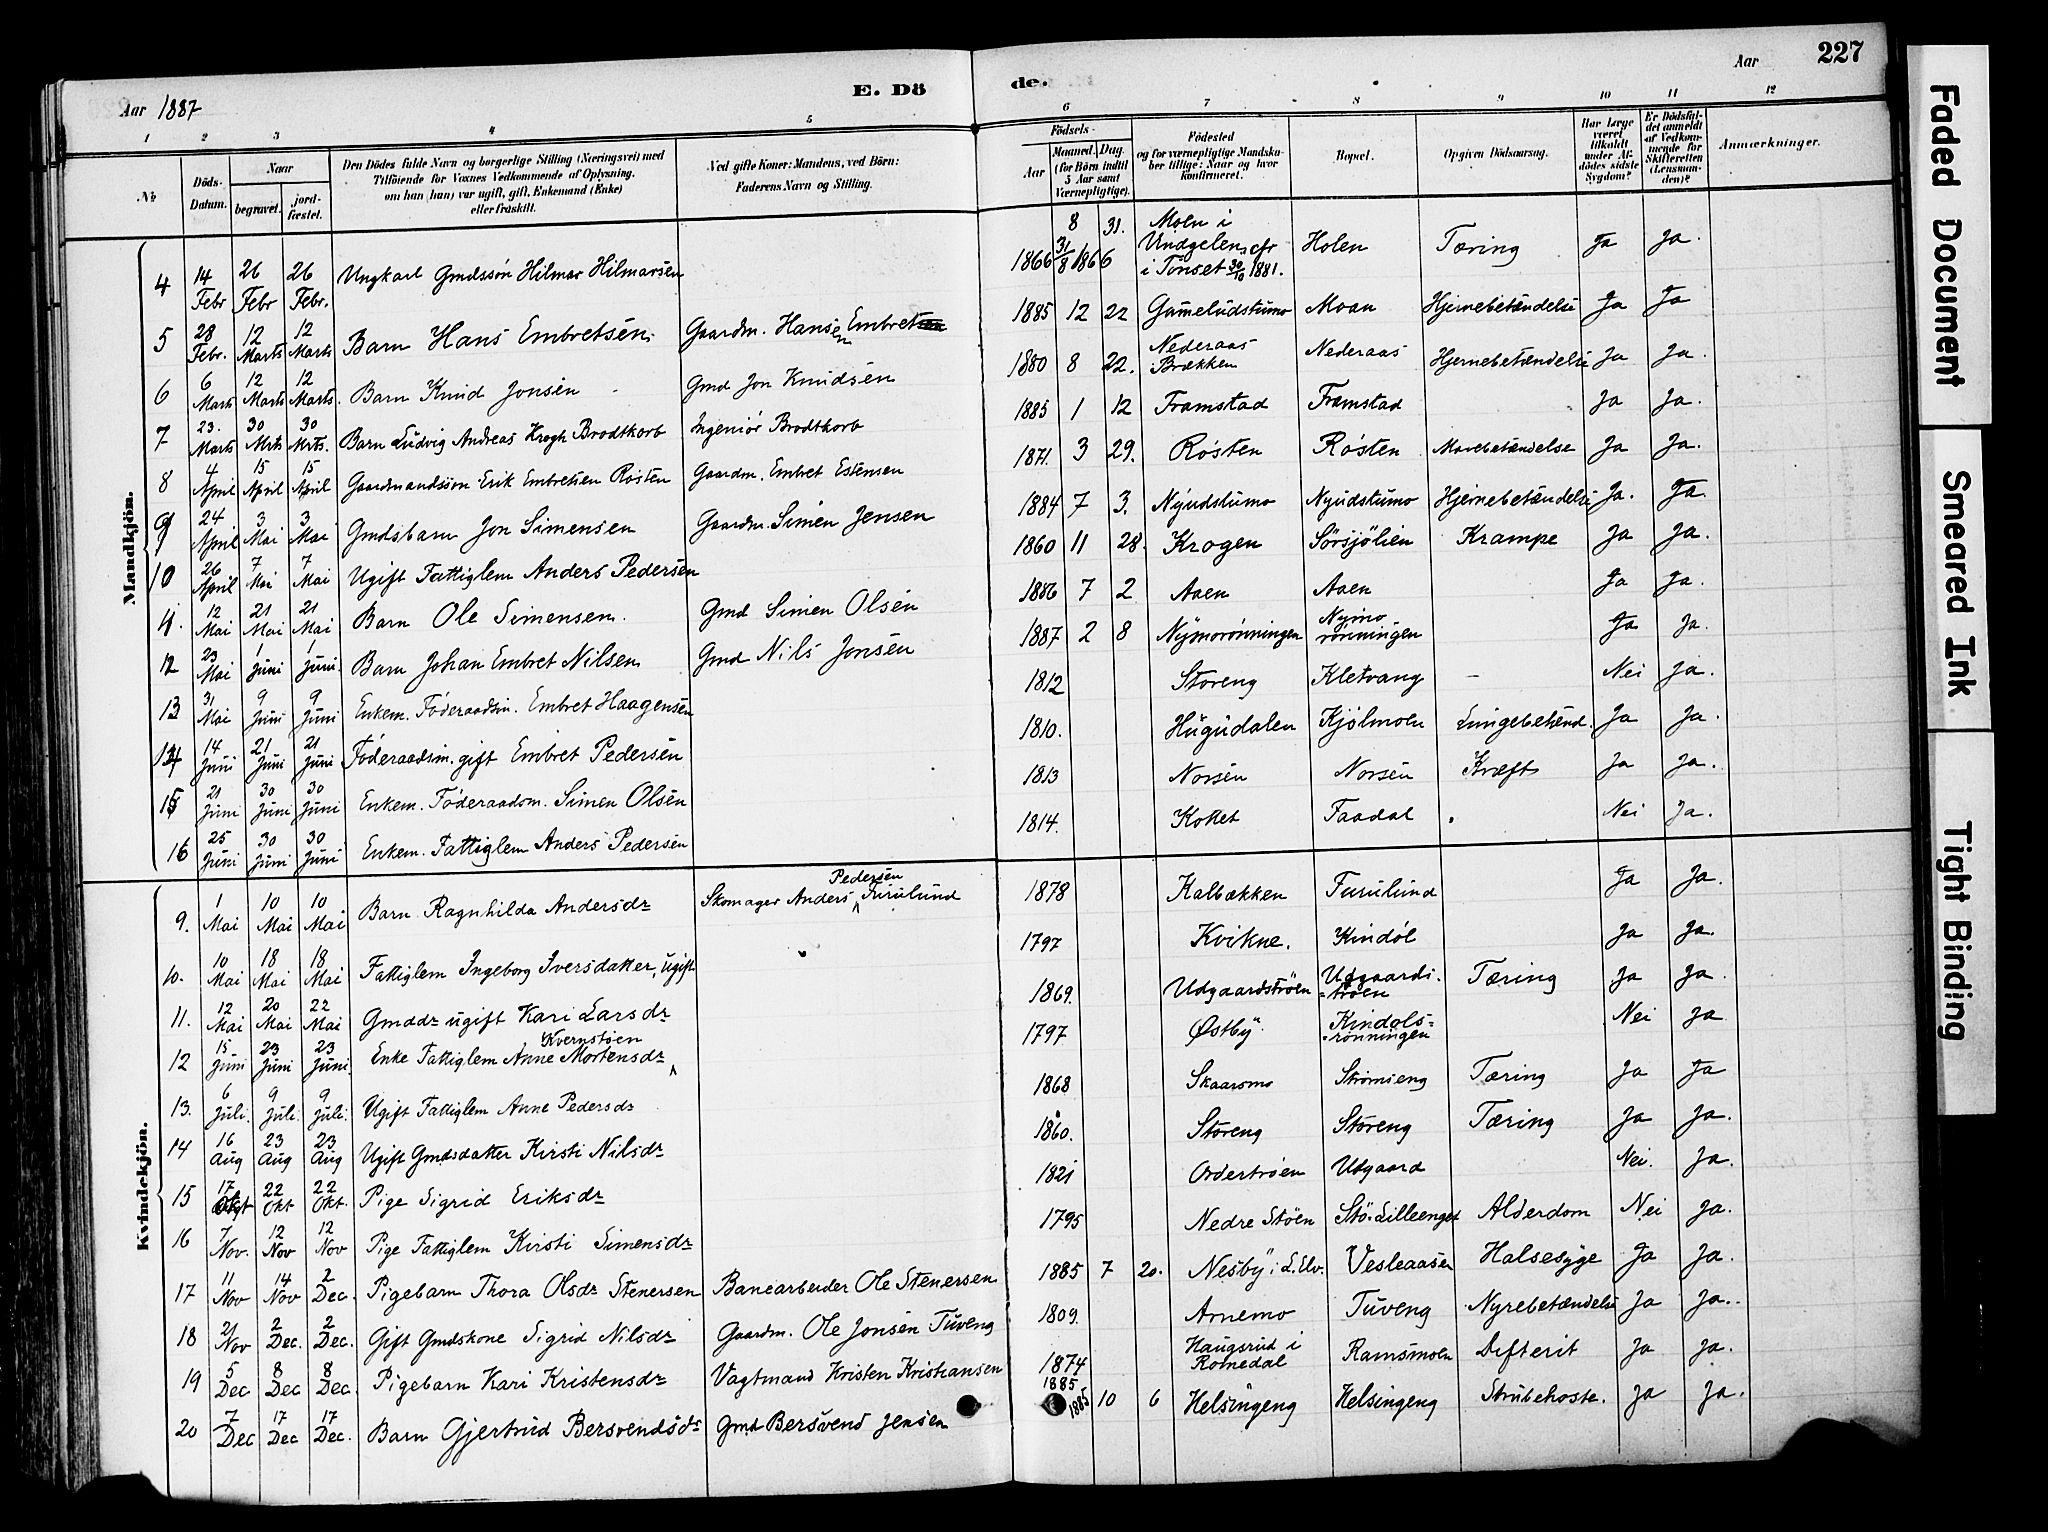 Aar 1887 E. Dö de. Aar 227
1 2 3 4 5 6 7 8 9 10 11 12
No. Döds-Datum. Naar begravet. jord-fæstet. Den Dödes fulde Navn og borgerlige Stilling (Næringsvei) med Tilföiende for Voxnes Vedkommende af Oplysning, om han (hun) var ugift, gift, Enkemand (Enke) eller fraskilt. Ved gifte Koner: Mandens, ved Börn: Faderens Navn og Stilling. Födsels- Aar Maaned. Dag. (for Börn indtil 5 Aar samt Værnepligtige). Födested og for værnepligtige Mandska-ber tillige: Naar og hvor konfirmeret. Bopæl. Opgiven Dödsaarsag. Har Læge været tilkaldt under Af-dödes sidste Sygdom? Er Dödsfal-det anmeldt af Vedkom-mende for Skifteretten (Lensman-den)? Anmærkninger.
Mandkjön.
4 14 Febr 26 Febr 26 Febr. Ungkarl Gmdssön Hilmar Hilmarsen 1866 31/8 1866 8 31. Moen i Undgelen, cfr i Tönset 30/10 1881. Holen Tæring Ja Ja.
5 28 Febr. 12 Marts 12 Marts Barn Hans Embretsen. Gaardm. Hans Embretsen 1885 12 22 Gameludstumo Moan Hjernebetændelse Ja Ja
6 6 Marts 12 Marts 12 Marts. Barn Knud Jonsen Gmd Jon Knudsen 1880 8 22. Nederaas Brækken Nederaas Hjernebetændelse Ja Ja.
7 23. Marts 30 Mrts 30 Mrts. Barn Ludvig Andreas Krogh Brodtkorb Ingeniör Brodtkorb 1885 1 12 Framstad Framstad Ja Ja.
8 4 April 15 April 15 April Gaardmandssön Erik Embretsen Rösten Gaardm. Embret Estensen 1871. 3 29. Rösten Rösten Mavebetændelse Ja Ja.
9 24 April 3 Mai 3 Mai Gmdsbarn Jon Simensen Gaardm. Simen Jensen 1884 7 3. Nyudstumo Nyudstumo Hjernebetændelse Ja. Ja.
10 26 April 7 Mai 7 Mai Ugift Fattiglem Anders Pedersen 1860 11 28. Krogen Sörsjölien Krampe Ja Ja.
11. 12 Mai 21 Mai 21 Mai Barn Ole Simensen. Gmd Simen Olsen 1886 7 2 Aaen Aaen Ja Ja.
12 23 Mai 1 Juni 1 Juni. Barn Johan Embret Nilsen Gmd Nils Jonsen 1887 2 8 Nymorönningen Nymo rönningen Ja Ja.
13 31 Mai 9 Juni 9 Juni Enkem. Föderaadsm. Embret Haagensen 1812 Storeng Kletvang - Nei Ja.
14 14 Juni 21 Juni 21 Juni Föderaadsm. gift Embret Pedersen 1810. Hugudalen Kjölmoen Lungebetænd. Ja Ja.
15 21 Juni 30 Juni 30 Juni Enkem. Föderaadsm. Simen Olsen 1813 Norsen Norsen Kræft Ja Ja.
16 25 Juni 30 Juni 30 Juni Enkem. Fattiglem Anders Pedersen 1814. Koket Faadal Nei Ja.
Kvindekjön.
9. 1 Mai 10 Mai 10 Mai Barn Ragnhilda Andersdr Skomager Anders Pedersen Furulund 1878 Kalbækken Furulund Ja Ja.
10. 10 Mai 18 Mai 18 Mai Fattiglem Ingeborg Iversdatter, ugift 1797 Kvikne. Kindöl Ja Ja.
11. 12 Mai 20 Mai 22 Mai Gmddr ugift Kari Larsdr 1869. Udgaardströen Udgaards-tröen Tæring Ja Ja.
12 15 Juni 23 Juni 23 Juni Enke Fattiglem Anne Mortensdr Kvernstöen 1797 Østby Kindöls-rönningen Nei Ja
13. 6 Juli 9 Juli. 9 Juli. Ugift Fattiglem Anne Pedersdr 1868 Skaarsmo Strömseng Tæring Ja Ja
14 16 Aug 23 Aug 23 Aug Ugift Gmdsdatter Kirsti Nilsdr 1860. Storeng Storeng Tæring Ja Ja.
15 17 Okt 22 Okt 22 Okt. Pige Sigrid Eriksdr 1821 Ordertröen Udgaard Nei. Ja.
16 7 Nov. 12 Nov 12 Nov Pige Fattiglem Kirsti Simensdr 1795 Nedre Stöen Stö-Lilleenget Alderdom Nei Ja.
17 11 Nov 14 Nov 2 Dec. Pigebarn Thora Olsdr Stenersen Banearbeider Ole Stenersen 1885 7 20. Nesby i L.Elv. Vesleaasen Halsesyge Ja Ja.
18 21 Nov 2 Dec. 2 Dec. Gift Gmdskone Sigrid Nilsdr Gaardm. Ole Jonsen Tuveng 1809. Arnemo Tuveng Nyrebetændelse Ja Ja.
19 5 Dec 8 Dec 8 Dec. Pigebarn Kari Kristensdr Vagtmand Kristen Kristiansen 1874 Haugsrud i Romedal Ramsmoen Difterit Ja Ja.
20 7 Dec 17 Dec 17 Dec. Barn Gjertrud Bersvendsdr Gmd Bersvend Jensen 1885 1885 10 6 Helsingeng Helsingeng Strubehoste. Ja Ja.
Faded Document
Smeared Ink
Tight Binding